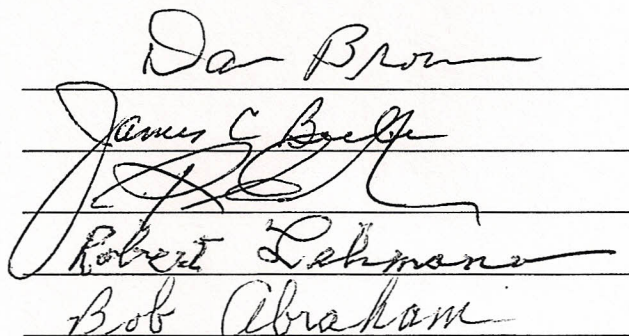 Dan Brown
James C
Robert Lehmann
Bob Abraham